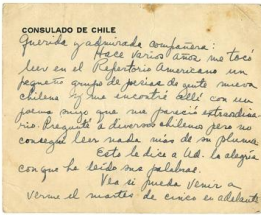 CONSULADO DE CHILE
Querida y admirada compañera:
Hace varios años me tocó
leer en el Repertorio Americano un
pequeño grupo de poesías de gente nueva
chilena y me encontré allí con un
poema muy que me pareció extraordina
rio. Pregunté a diversos chilenos pero no
conseguí leer nada más de su pluma.
Esto le dice a Ud. la alegría
con que he leído sus palabras.
Vea si puede venir a
verme el martes de cinco en adelante